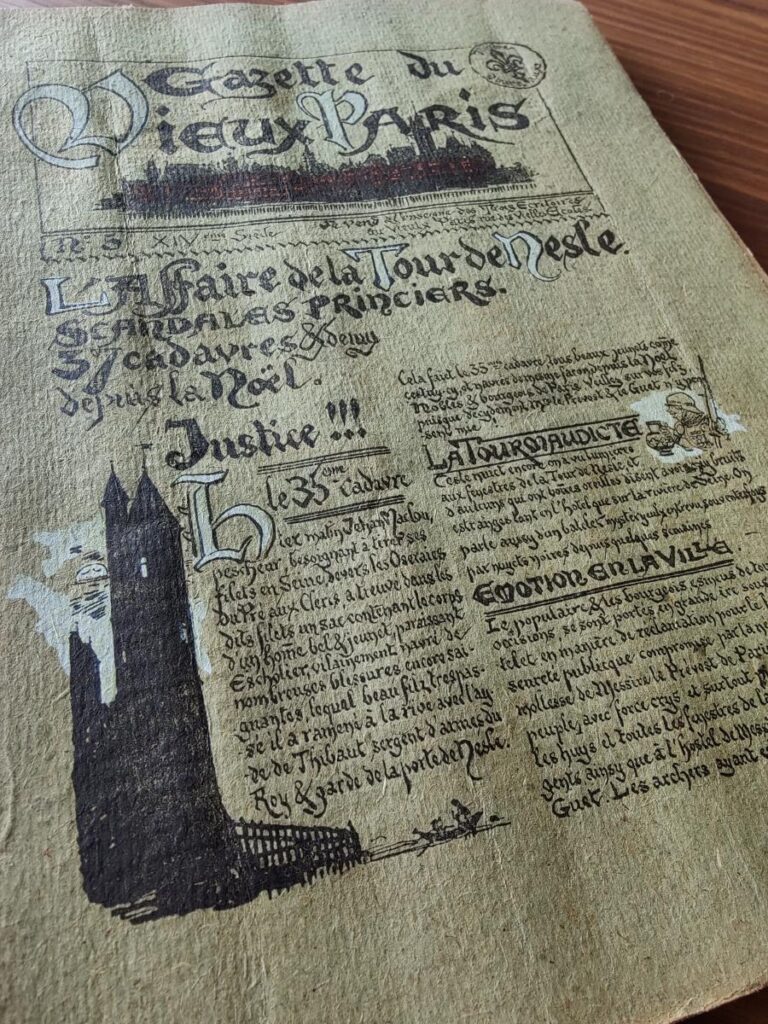 Gazette du
Vieux Paris
N° 5 XIVème Siècle
L'Affaire de la Tour de Nesle.
Scandales Princiers.
37 cadavres & demy
depuis la Noël.
Justice !!!
le 35ème cadavre
Hier matin Johan Marlou,
pescheur, besoignant à tirer ses
filets en Seine devers les Oseraies
du Pré aux Clercs a treuvé dans les
dits filets un sac contenant le corps
d'un home bel & jeunet, paraissant
Escholier, vilainement navré de
nombreuses blessures encore sai-
gnantes, lequel beau filz trespas-
sé il a ramené à la rive avec l'ay
de de Thibaut sergent d'armes du
Roy & garde de la porte de Nesle.
Cela faict le 35ème cadavre, tous beaux, jeunes come
cestuy-cy, et navrés de mesme façon depuis la Noël.
Nobles & bourgeois de Paris
le Prévost & le Guet
La Tour Maudicte
Ceste nuict encore on a vu lumière
aux fenestres de la Tour de Nesle, et
d'aulcuns qui ont bonnes oreilles disent avoir
estranges tant en l'hotel que sur la rivière de Seine. On
parle aussy d'un batel
depuis quelques semaines
Emotion en la Ville.
Le populaire & les bourgeois esmeus de
occisions, se sont portés en grande ire
en manière de réclamation pour la
seureté publicque compromise par la
mollesse de Messire le Prévost de Paris
peuple, avec force crys et surtout
les huys et toutes les fenestres de la
gents ainsy que à l'hostel de
Guet. Les archers ayant